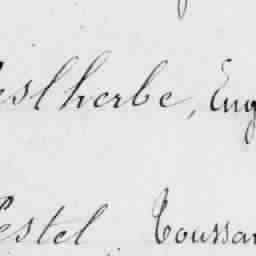 eslherbe, Eug
estel Toussai